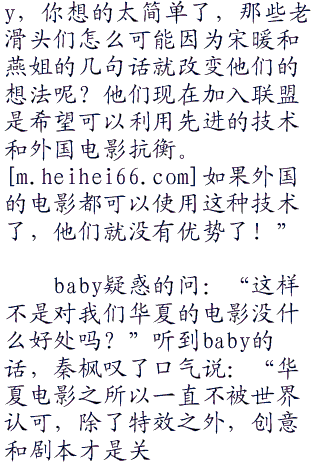 y，你想的太简单了，那些老
滑头们怎么可能因为宋暖和
燕姐的几句话就改变他们的
想法呢？他们现在加入联盟
是希望可以利用先进的技术
和外国电影抗衡。
[m.heihei66.com]如果外国
的电影都可以使用这种技术
了，他们就没有优势了！”
baby疑惑的问：“这样
不是对我们华夏的电影没什
么好处吗？”听到baby的
话，秦枫叹了口气说：“华
夏电影之所以一直不被世界
认可，除了特效之外，创意
和剧本才是关